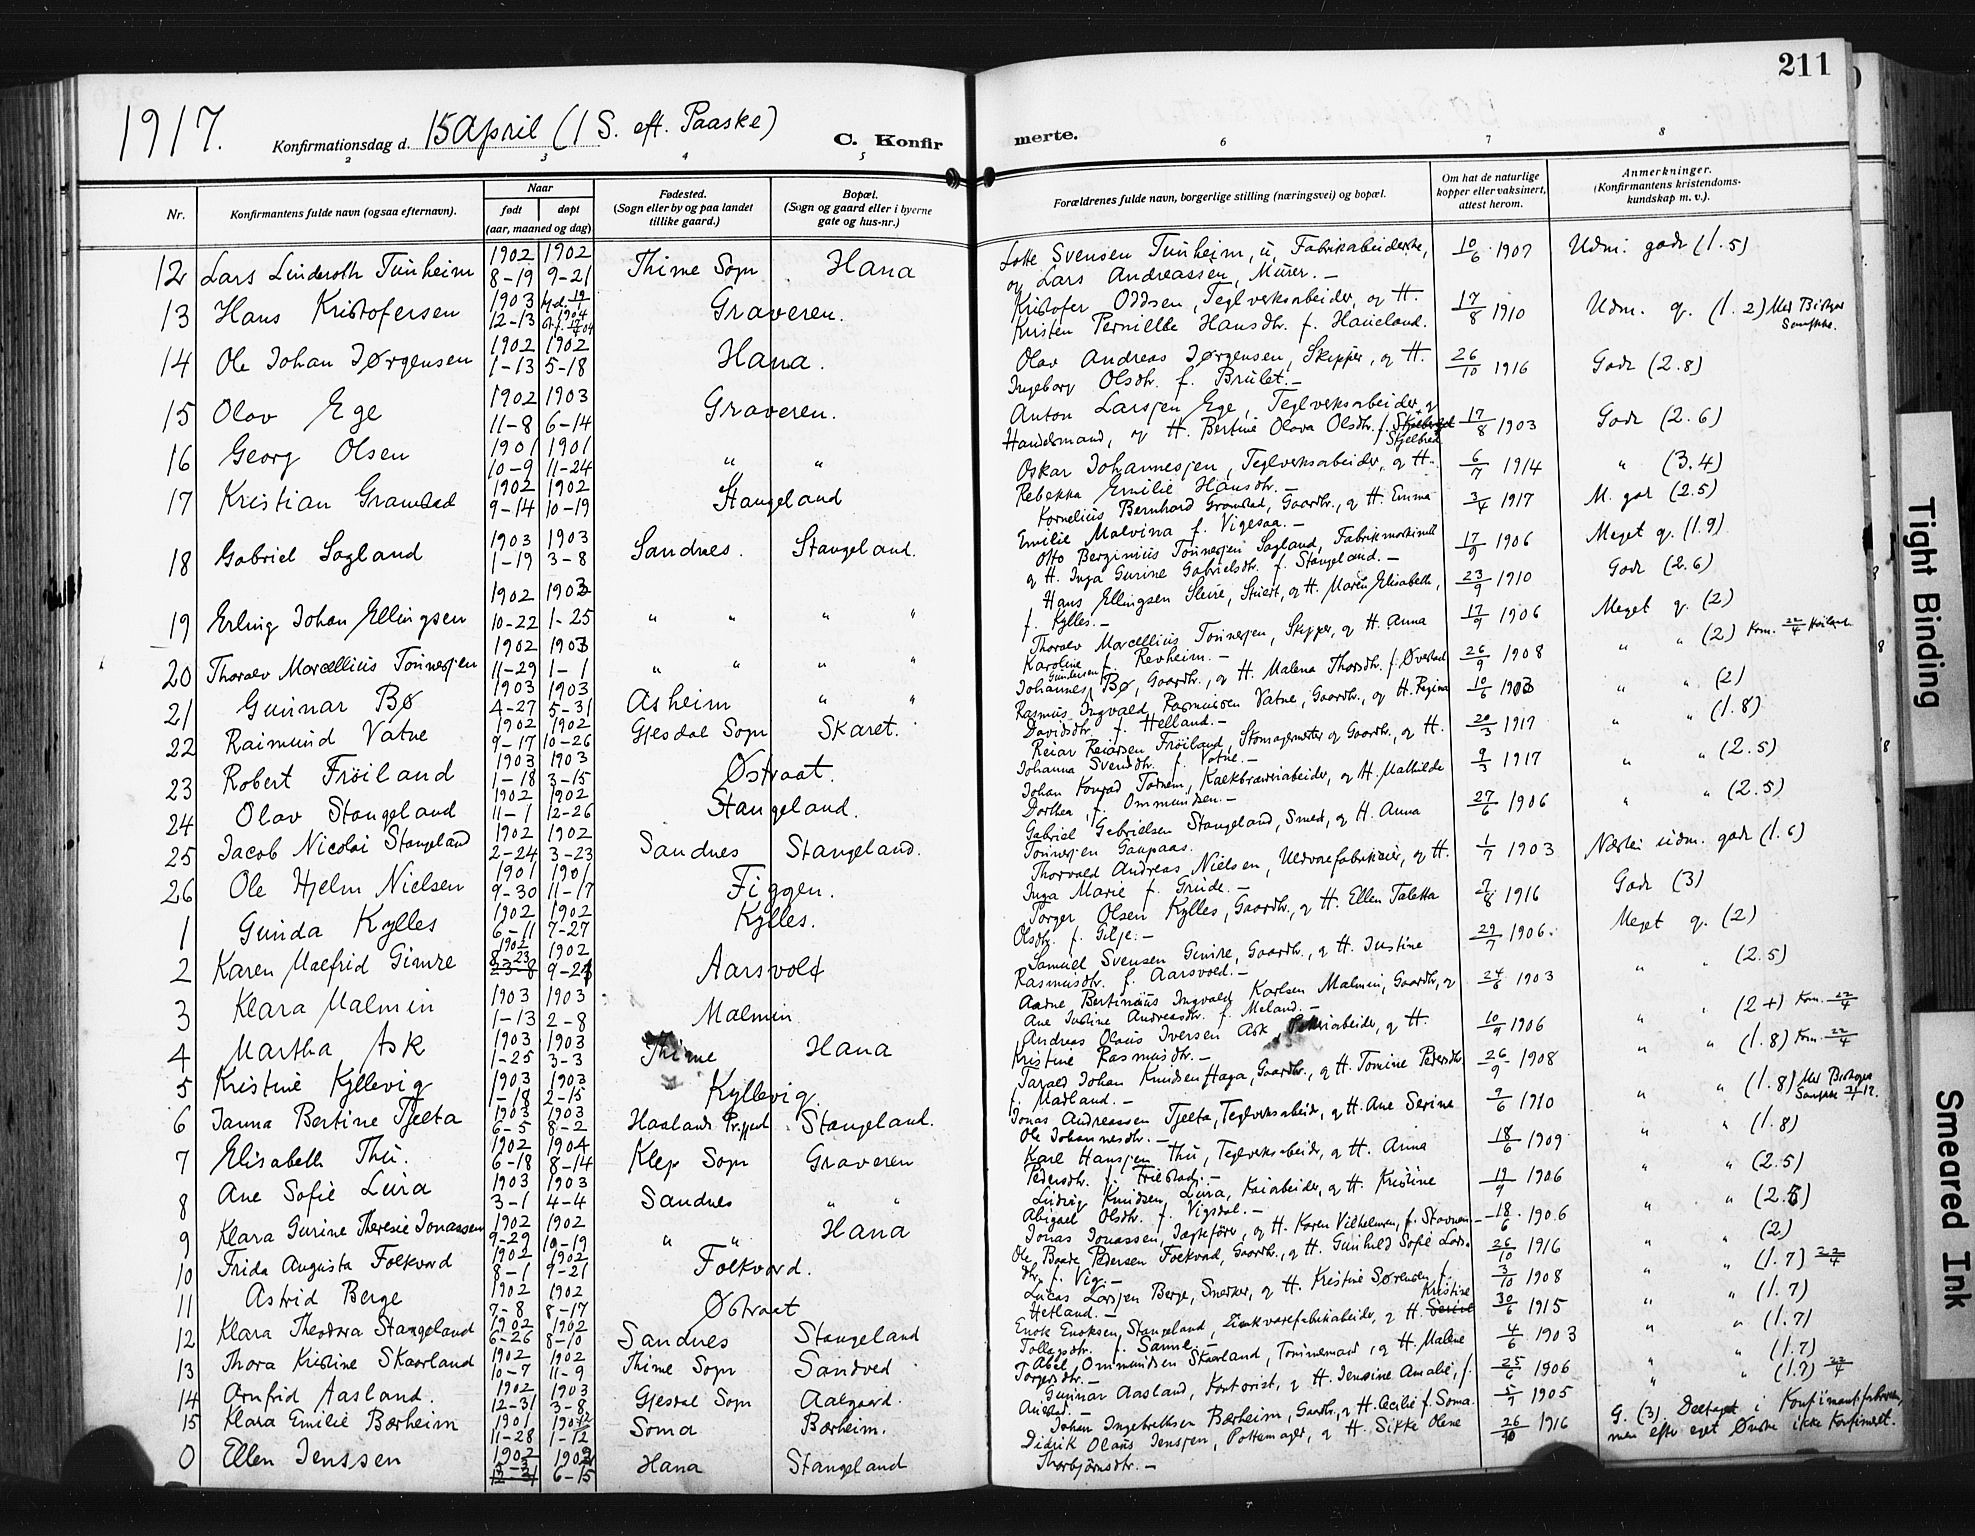 211
1917.
Konfirmationsdag d. 15 April (1 S. eft. Paaske)
C. Konfirmerte.
2 3 4 5 6 7 8
Nr.
Konfirmantens fulde navn (ogsaa efternavn).
Naar
født døpt
(aar, maaned og dag)
Fødested.
(Sogn eller by og paa landet
tillike gaard.)
Bopæl.
(Sogn og gaard eller i byerne
gate og hus-nr.)
Forældrenes fulde navn, borgerlige stilling (næringsvei) og bopæl.
Om hat de naturlige
kopper eller vaksinert,
attest herom.
Anmerkninger.
(Konfirmantens kristendoms-
kundskap m. v.).
12 Lars Linderoth Tunheim 1902 8-19 1902 9-21 Thime Sogn Hana
Lotte Svensen Tunheim, u. Fabrikabeiderske, 10/6 1907 Udm. godt (1.5)
og Lars Andreassen, Murer. -
13 Hans Kristofersen 1903 12-13 Graveren.
Kristofer Oddsen, Teglverksarbeider, og H. 17/8 1910 Udm. g. (1.2)
Kristen Pernille Hansdtr. f. Haueland.
14 Ole Johan Jørgensen 1902 1-13 1902 5-18 Hana.
Olav Andreas Jørgensen, Skipper, og H. 26/10 1916 Godt (2.8)
Ingeborg Olsdtr. f. Brulet. -
15 Olav Ege 1902 11-8 1903 6-14 Graveren.
Anton Larsjen Ege, Teglverksarbeider og 17/8 1903 Godt (2.6)
Handelsmand, og H. Bertine Olava Olsdtr. f. Skjelbred
16 Georg Olsen 1901 10-9 1901 11-24 " "
Oskar Johannesjen, Teglverksarbeider, og H. 6/7 1914 " (3.4)
Rebekka Emilie Hansdtr. -
17 Kristian Gramstad 1902 9-14 1902 10-19 Stangeland
Kornelius Bernhard Gramstad, Gaardbr., og H. Emma 3/4 1917 M. godt (2.5)
Emilie Malvina f. Vigesaa. -
18 Gabriel Sagland 1903 1-19 1903 3-8 Sandnes. Stangeland.
Otto Berginius Tønnesjen Sagland, Fabrikmaskinist 17/9 1906 Meget g. (1.9)
og H. Inga Gurine Gabrielsdtr. f. Stangeland. -
19 Erling Johan Ellingsen 1902 10-22 1903 1-25 " " " "
Hans Ellingsen Sleire, Stuert, og H. Maren Elisabeth, 23/9 1910 Godt (2.6)
f. Kylles. -
20 Thoralv Marcellius Tønnesjen 1902 11-29 1903 1-1 " " " "
Thoralv Marcellius Tønnesjen, Skipper, og H. Anna 17/9 1906 Meget g. (2)
Karoline f. Revheim. -
21 Gunnar Bø 1903 4-27 1903 5-31 Asheim " "
Johannes Bø, Gaardbr., og H. Malena Thorsdtr. f. Øvestad 26/9 1908 " " (2)
22 Raimund Vatne 1902 9-17 1902 10-26 Gjesdal Sogn Skaret.
Rasmus Ingvald Rasmussen Vatne, Gaardbr., og H. Regina 10/6 1903 " " (2)
Davidsdtr. f. Helland. -
23 Robert Frøiland 1903 1-18 1903 3-15 Østraat.
Reiar Reiarsen Frøiland, Skomagermester og Gaardbr., og H. 20/3 1917 " " (1.8)
Johanna Svendsdtr. f. Vatne. -
24 Olav Stangeland 1902 11-1 1902 12-26 Stangeland.
Johan Konrad Kalkbrænriabeider, og H. Mathilde 9/3 1917 " " (2.5)
Dorthea f. Ommundsen. -
25 Jacob Nicolai Stangeland 1902 2-24 1902 3-23 Sandnes Stangeland.
Gabriel Gabrielsen Stangeland, Smed, og H. Anna 27/6 1906 " " (2.5)
Tønnesjen Gaupaas.
26 Ole Hjelm Nielsen 1901 9-30 1901 11-17 Figgen.
Thorvald Andreas Nielsen, Uldvarefabrikeier, og H. 1/7 1903 Næsten udm. godt (1.6)
Inga Marie f. Grude. -
1 Gunda Kylles 1902 6-11 1902 7-27 Kylles.
Torger Olsen Kylles, Gaardbr., og H. Ellen Taletta 7/8 1916 Godt (3)
Olsdtr. f. Gilje. -
2 Karen Malfrid Gimre 1902 8-23 1902 9-21 Aarsvold
Samuel Svensen Gimre, Gaardbr., og H. Justine 29/7 1906. Meget g. (2)
Rasmusdtr. f. Aarsvold. -
3 Klara Malmin 1903 1-13 1903 2-8 Malmin
Aadne Bertinius Ingvald Karlsen Malmin, Gaardbr., og 24/6 1903 " " (2.5)
Ane Justine Andreasdtr. f. Meland. -
4 Martha Ask 1903 1-25 1903 3-3 Thime Hana
Andreas Olaus Iversen Ask og H. 10/9 1906 " " (2+) Kom. 22/4
Kristine Rasmusdtr. -
5 Kristine Kyllevig 1903 1-18 1903 2-15 Kyllevig.
Tarald Johan Knudsen Haga, Gaardbr., og H. Tomine Pedersdtr. 26/9 1908 " " (1.8) Kom. 22/4
f. Madland. -
6 Janna Bertine Tjelta 1903 6-5 1903 8-2 Haaland Prgjeld Stangeland.
Jonas Andreassen Tjelta, Teglverksarbeider, og H. Ane Serine 9/6 1910 " " (1.8)
Ole Johannesdtr. -
7 Elisabeth Thu. 1902 6-18 1904 8-14 Klep Sogn Graveren
Karl Hansjen Thu, Teglverksarbeider, og H. Anna 18/6 1909 " " (1.8)
Pedersdtr. f. Friestad. -
8 Ane Sofie Lura 1903 3-1 1903 4-4 Sandnes " "
Ludvig Knudsen Lura, Kaiarbeider, og H. Kristine 19/9 1906 " " (2.5)
Abigael Olsdtr. f. Vigsdal. -
9 Klara Gurine Theresie Jonassen 1902 9-29 1902 10-19 " " Hana
Jonas Jonassen, Jagtefører, og H. Karen Vilhelmsen, f. Stavnem - 18/6 1906 " " (2.5)
10 Frida Augusta Folkvord 1902 8-1 1902 9-21 Folkvord.
Ole Baare Pedersen Folkvord, Gaardbr., og H. Gunhild Sofie Lars- 26/10 1916 " " (2)
dtr. f. Vig. -
11 Astrid Berge 1902 7-8 1902 8-17 Østraat
Lucas Larsjen Berge, Snekker, og H. Kristine Sørensdtr. f. 3/10 1908 " " (1.7) 22/4
Hetland. -
12 Klara Theodora Stangeland 1902 6-26 1902 8-10 Sandnes Stangeland
Enok Enoksen Stangeland, Zinkvarefabrikabeider, og H. Kristine 30/6 1915 " " (1.7)
Tollefsdtr. f. Sanne. -
13 Thora Kristine Skaarland 1902 10-7 1902 11-9 Thime Sogn Sandved
Abel Ommundsen Skaarland, Tømmermand, og H. Malene 4/6 1903 " " (1.7)
Torgersdtr. -
14 Arnfrid Aasland. 1902 12-31 1903 3-8 Gjesdal Sogn Aalgaard.
Gunnar Aasland, Kontorist, og H. Jensine Amalie, f. 25/6 1906 " " (1.7)
15 Klara Emilie Bærheim 1901 11-28 1902 1-12 Soma Bærheim.
Johan Ingebretsen Bærheim, Gaardbr., og H. Cecilie f. Soma. 5/9 1905 " " (1.7) 22/4
0 Ellen Jenssen 1902 1902 6-15 Hana Stangeland
Didrik Olaus Jensjen, Pottemager, og H. Sikke Olene 26/10 1916 G. (3). Deltaget i Konfirmantforbered.
Thorbjørnsdtr. - men efter eget Ønske ikke konfirmert.
Tight Binding
Smeared Ink